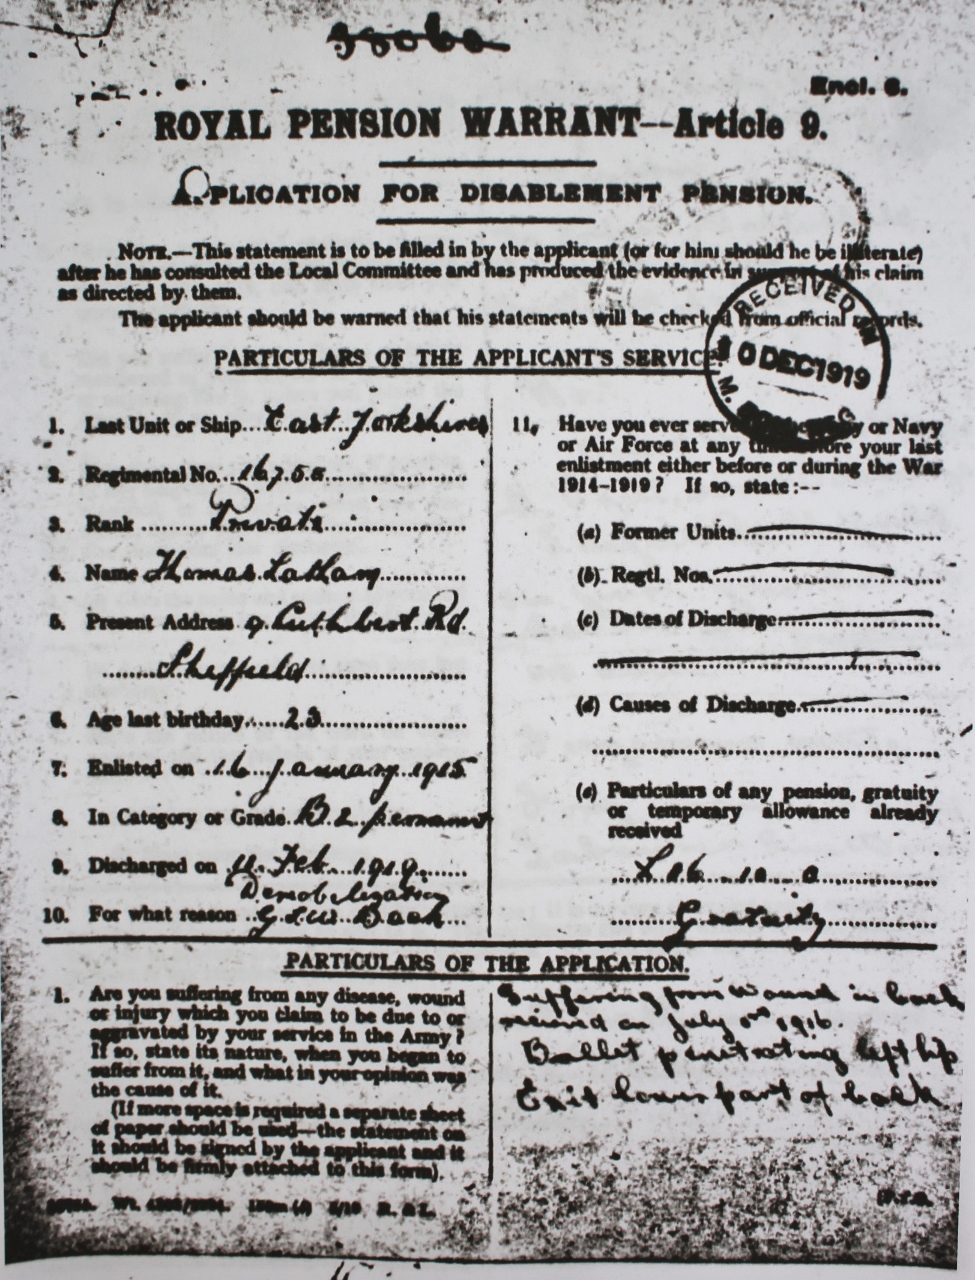 Encl. 6.
ROYAL PENSION WARRANT—Article 9.
APPLICATION FOR DISABLEMENT PENSION.
NOTE.—This statement is to be filled in by the applicant (or for him should he be illiterate)
after he has consulted the Local Committee and has produced the evidence in support of his claim
as directed by them.
The applicant should be warned that his statements will be checked from official records.
RECEIVED
10 DEC 1919
PARTICULARS OF THE APPLICANT'S SERVICE
1. Last Unit or Ship East Yorkshires
2. Regimental No.
3. Rank Private
4. Name Thomas Latham
5. Present Address 9 Cuthbert Rd.
Sheffield
6. Age last birthday 23
7. Enlisted on 16 January 1915
8. In Category or Grade B 2 permanent
9. Discharged on Feb. 1919
10. For what reason
11. Have you ever served in the Army or Navy
or Air Force at any time before your last
enlistment either before or during the War
1914–1919? If so, state:--
(a) Former Units
(b) Regtl. Nos.
(c) Dates of Discharge
(d) Causes of Discharge
(e) Particulars of any pension, gratuity
or temporary allowance already
received
Gratuity
PARTICULARS OF THE APPLICATION.
1. Are you suffering from any disease, wound
or injury which you claim to be due to or
aggravated by your service in the Army?
If so, state its nature, when you began to
suffer from it, and what in your opinion was
the cause of it.
(If more space is required a separate sheet
of paper should be used—the statement on
it should be signed by the applicant and it
should be firmly attached to this form).
Suffering from wound in back
received on July 1916.
Bullet penetrating left hip
Exit lower part of back